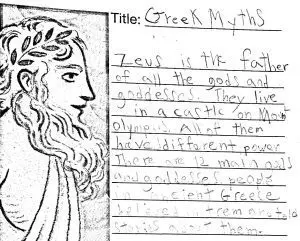 Title: Greek Myths
Zeus is the father
of all the gods and
goddesses. They live
in a castle on Mount
Olympus. All of them
have different power
There are 12 main gods
and goddesses people
in ancient Greece
believed in them and told
stories about them.